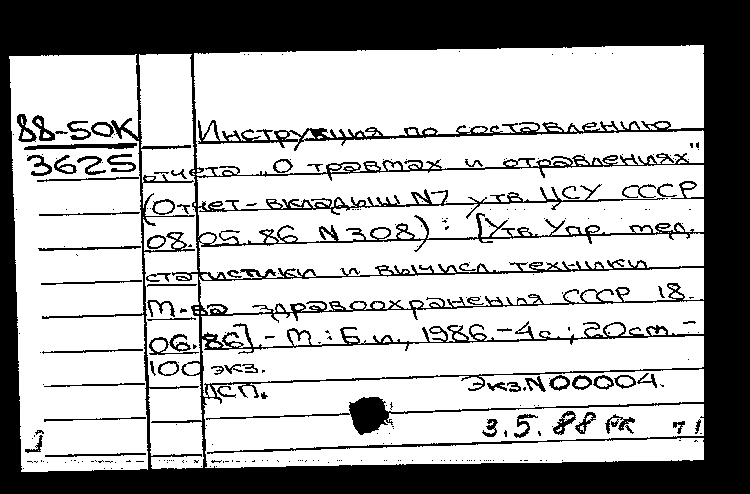 88-50К
3625
Инструкция по составлению
отчета „О травмах и отравлениях"
(Отчет-вкладыш N7 утв. ЦСУ СССР
08.05.86 N308) : [Утв. Упр. мед.
статистики и вычисл. техники
М-ва здравоохранения СССР 18.
06.86].- М. : Б.и., 1986.-4с.; 20см.-
100 экз.
ДСП.
Экз.N00004.
3.5.88 РК 71